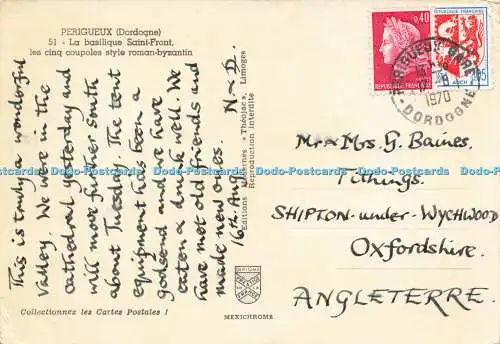 PERIGUEUX (Dordogne)
51 - La basilique Saint-Front,
les cinq coupoles style roman-byzantin
This is truly a wonderful
Valley. We were in the
cathedral yesterday and
will move further South
about Tuesday. The tent
equipment has been a
godsend and we have
eaten & drunk well. We
have met old friends and
made new ones.
16th. Aug. N & D.
"Théojac", Limoges
Reproduction interdite
Collectionnez les Cartes Postales !
MEXICHROME
0,40
REPUBLIQUE FRANÇAISE
REPUBLIQUE FRANÇAISE
AUCH
PERIGUEUX GARE
1970
DORDOGNE
Mr & Mrs. G. Baines,
Tithings.
SHIPTON-under-WYCHWOOD
Oxfordshire.
ANGLETERRE.
Dodo-Postcards Dodo-Postcards Dodo-Postcards Dodo-Postcards Dodo-Postcards